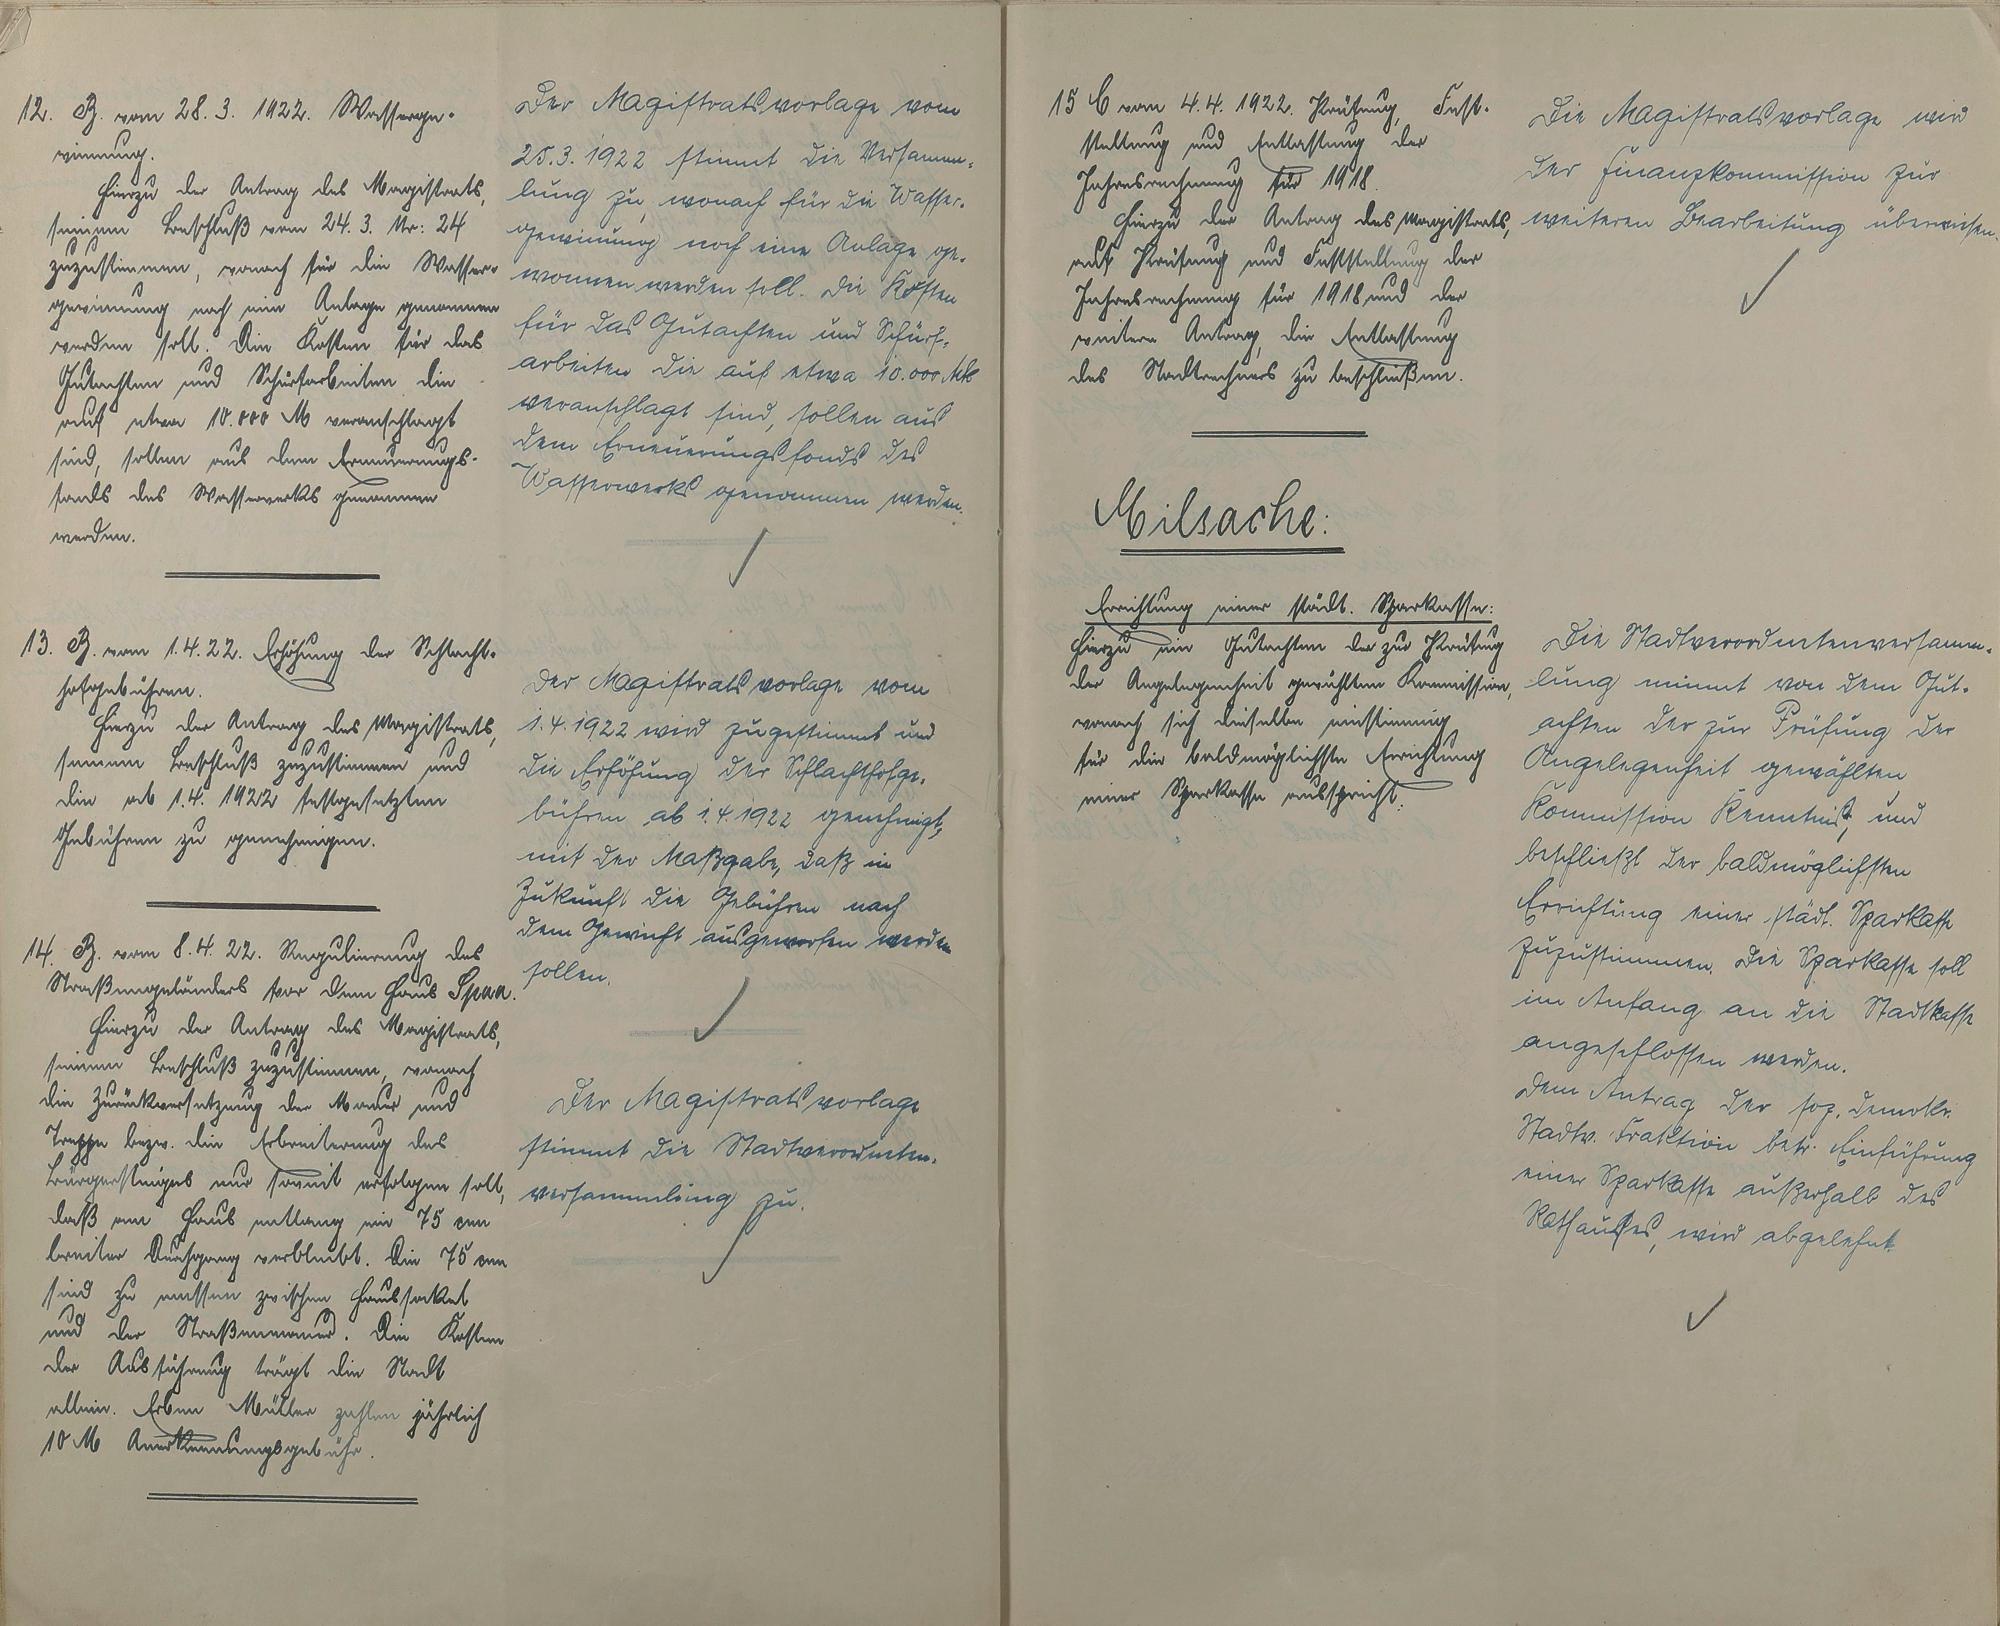 12. B. vom 28. 3. 1922. Wasserge-
winnung.
Hierzu der Antrag des Magistrats,
seinem Beschluß vom 24. 3. Nr: 24
zuzustimmen, wonach für die Wasser-
gewinnung noch eine Anlage genommen
werden soll. Die Kosten für das
Gutachten und Schürfarbeiten die
auf etwa 10.000 M veranschlagt
sind, sollen aus dem Erneuerungs-
fonds des Wasserwerks genommen
werden.
Der Magistratsvorlage vom
25. 3. 1922 stimmt die Versamm-
lung zu, wonach für die Wasser-
gewinnung noch eine Anlage ge-
wonnen werden soll. Die Kosten
für das Gutachten und Schürf-
arbeiten die auf etwa 10.000 Mk
veranschlagt sind, sollen aus
dem Erneuerungsfonds des
Wasserwerks genommen werden.
13. B. vom 1. 4. 22. Erhöhung der Schlacht-
hofgebühren.
Hierzu der Antrag des Magistrats,
seinem Beschluß zuzustimmen und
die ab 1. 4. 1922 festgesetzten
Gebühren zu genehmigen.
Der Magistratsvorlage vom
1. 4. 1922 wird zugestimmt und
die Erhöhung der Schlachthofge-
bühren ab 1. 4. 1922 genehmigt,
mit der Maßgabe, daß in
Zukunft die Gebühren nach
dem Gewicht ausgeworfen werden
sollen.
14. B. vom 8. 4. 22. Regulierung des
Straßengeländers vor dem Haus Spaa.
Hierzu der Antrag des Magistrats,
seinem Beschluß zuzustimmen, wonach
die Zurückversetzung der Mauer und
Treppe bezw. die Erbreiterung des
Bürgersteiges nur soweit erfolgen soll,
daß am Haus entlang ein 75 cm
breiter Durchgang verbleibt. Die 75 cm
sind zu messen zwischen Haussockel
und der Straßenmauer. Die Kosten
der Ausführung trägt die Stadt
allein. Erben Müller zahlen jährlich
10 M Anerkennungsgebühr.
Der Magistratsvorlage
stimmt die Stadtverordneten-
versammlung zu.
15 C vom 4. 4. 1922. Prüfung, Fest-
stellung und Entlastung der
Jahresrechnung für 1918.
Hierzu der Antrag des Magistrats,
auf Prüfung und Feststellung der
Jahresrechnung für 1918 und der
weitere Antrag, die Entlastung
des Stadtrechners zu beschließen.
Die Magistratsvorlage wird
der Finanzkommission zur
weiteren Bearbeitung überwiesen.
Milsache:
Errichtung einer städt. Sparkasse:
Hierzu ein Gutachten der zur Prüfung
der Angelegenheit gewählten Kommission,
wonach sich dieselbe einstimmig
für die baldmöglichste Errichtung
einer Sparkasse ausspricht.
Die Stadtverordnetenversamm-
lung nimmt von dem Gut-
achten der zur Prüfung der
Angelegenheit gewählten
Kommission Kenntnis, und
beschließt der baldmöglichsten
Errichtung einer städt. Sparkasse
zuzustimmen. Die Sparkasse soll
im Anfang an die Stadtkasse
angeschlossen werden.
Dem Antrag der soz. demokr.
Stadtv. Fraktion betr. Einführung
einer Sparkasse außerhalb des
Rathauses, wird abgelehnt.